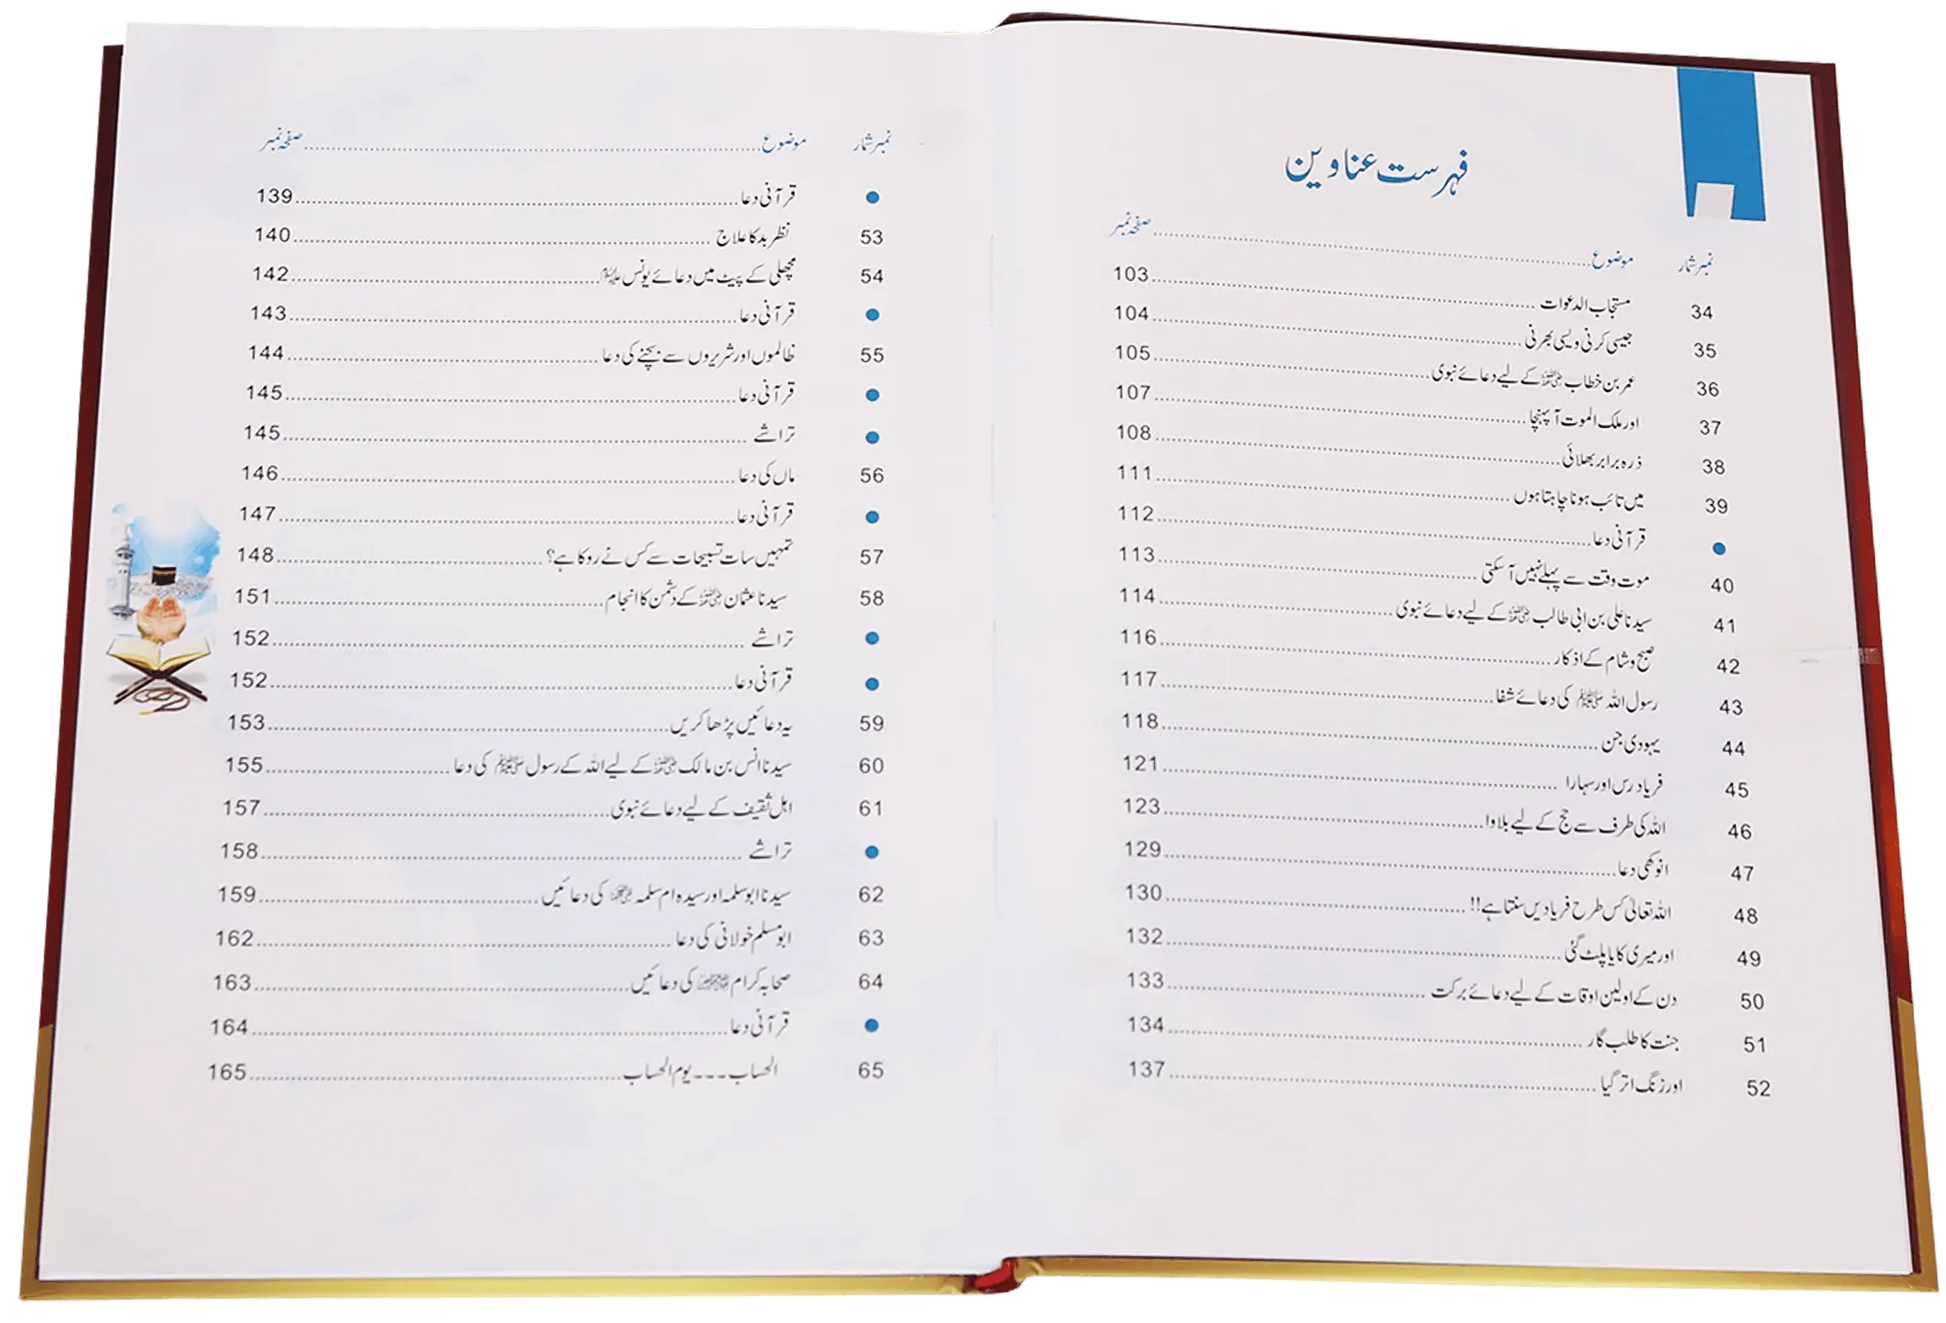 فہرست عناوین
نمبر شمار موضوع صفحہ نمبر
34 مستجاب الدعوات 103
35 جیسی کرنی ویسی بھرنی 104
36 عمر بن خطاب رضی اللہ عنہ کے لیے دعائے نبوی 105
37 اور ملک الموت آ پہنچا 107
38 ذرہ برابر بھلائی 108
39 میں تائب ہونا چاہتا ہوں 111
● قرآنی دعا 112
40 موت وقت سے پہلے نہیں آ سکتی 113
41 سیدنا علی بن ابی طالب رضی اللہ عنہ کے لیے دعائے نبوی 114
42 صبح و شام کے اذکار 116
43 رسول اللہ ﷺ کی دعائے شفا 117
44 یہودی جن 118
45 فریاد رس اور سہارا 121
46 اللہ کی طرف سے حج کے لیے بلاوا 123
47 انوکھی دعا 129
48 اللہ تعالیٰ کس طرح فریادیں سنتا ہے!! 130
49 اور میری کایا پلٹ گئی 132
50 دن کے اولین اوقات کے لیے دعائے برکت 133
51 جنت کا طلب گار 134
52 اور زنگ اتر گیا 137
نمبر شمار موضوع صفحہ نمبر
● قرآنی دعا 139
53 نظر بد کا علاج 140
54 مچھلی کے پیٹ میں دعائے یونس علیہ السلام 142
● قرآنی دعا 143
55 ظالموں اور شریروں سے بچنے کی دعا 144
● قرآنی دعا 145
● تراشے 145
56 ماں کی دعا 146
● قرآنی دعا 147
57 تمہیں سات تسبیحات سے کس نے روکا ہے؟ 148
58 سیدنا عثمان رضی اللہ عنہ کے دشمن کا انجام 151
● تراشے 152
● قرآنی دعا 152
59 یہ دعائیں پڑھا کریں 153
60 سیدنا انس بن مالک رضی اللہ عنہ کے لیے اللہ کے رسول ﷺ کی دعا 155
61 اہل ثقیف کے لیے دعائے نبوی 157
● تراشے 158
62 سیدنا ابو سلمہ اور سیدہ ام سلمہ رضی اللہ عنہما کی دعائیں 159
63 ابو مسلم خولانی کی دعا 162
64 صحابہ کرام رضی اللہ عنہم کی دعائیں 163
● قرآنی دعا 164
65 الحساب۔۔۔ یوم الحساب 165